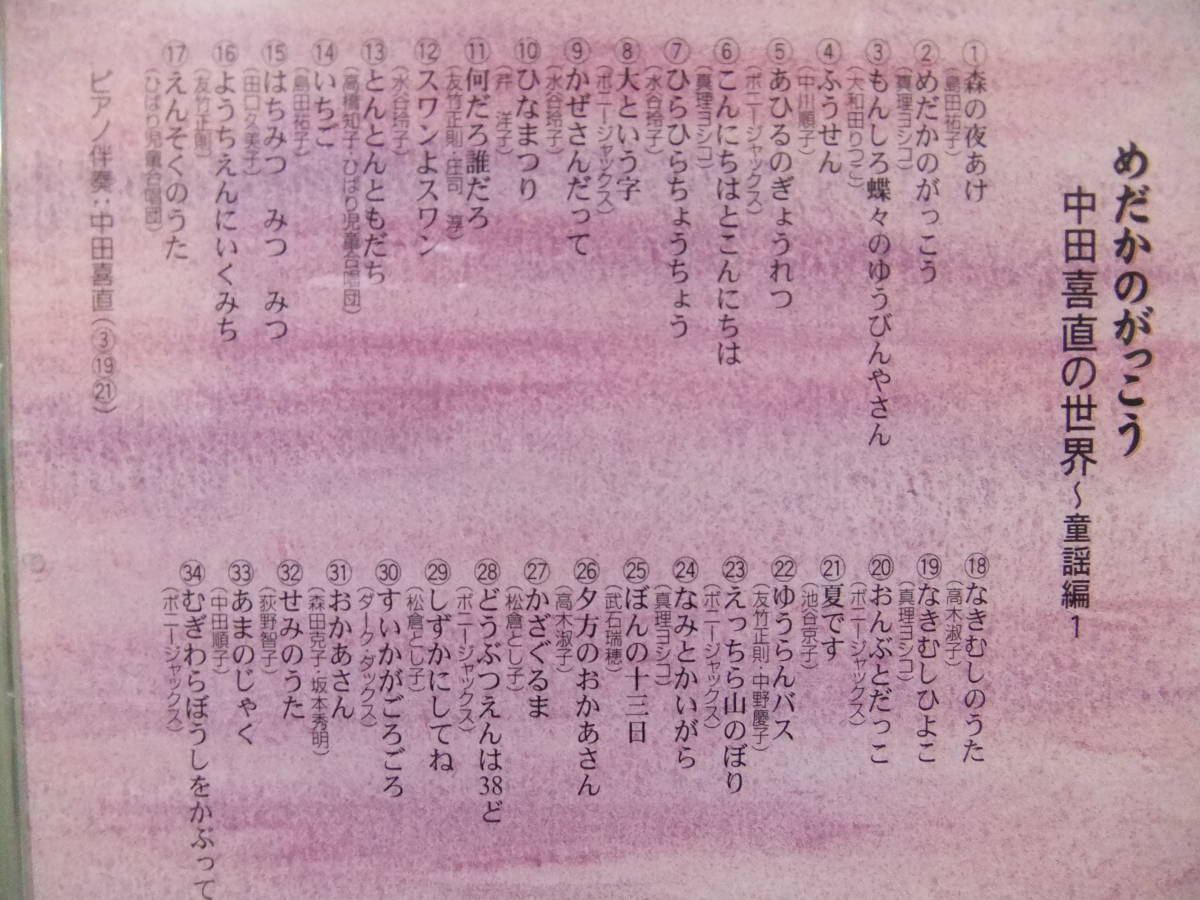 めだかのがっこう
中田喜直の世界～童謡編1
①森の夜あけ
（島田祐子）
②めだかのがっこう
（真理ヨシコ）
③もんしろ蝶々のゆうびんやさん
（大和田りつこ）
④ふうせん
（中川順子）
⑤あひるのぎょうれつ
（ボニージャックス）
⑥こんにちはとこんにちは
（真理ヨシコ）
⑦ひらひらちょうちょう
（水谷玲子）
⑧大という字
（ボニージャックス）
⑨かぜさんだって
（水谷玲子）
⑩ひなまつり
（芹 洋子）
⑪何だろ誰だろ
（友竹正則・庄司 淳）
⑫スワンよスワン
（水谷玲子）
⑬とんとんともだち
（高橋知子・ひばり児童合唱団）
⑭いちご
（島田祐子）
⑮はちみつ みつ みつ
（田口久美子）
⑯ようちえんにいくみち
（友竹正則）
⑰えんそくのうた
（ひばり児童合唱団）
ピアノ伴奏：中田喜直（③⑲㉑）
⑱なきむしのうた
（高木淑子）
⑲なきむしひよこ
（真理ヨシコ）
⑳おんぶとだっこ
（ボニージャックス）
㉑夏です
（池谷京子）
㉒ゆうらんバス
（友竹正則・中野慶子）
㉓えっちら山のぼり
（ボニージャックス）
㉔なみとかいがら
（真理ヨシコ）
㉕ぼんの十三日
（武石瑞穂）
㉖夕方のおかあさん
（高木淑子）
㉗かざぐるま
（松倉とし子）
㉘どうぶつえんは38ど
（ボニージャックス）
㉙しずかにしてね
（松倉とし子）
㉚すいかがごろごろ
（ダーク・ダックス）
㉛おかあさん
（森田克子・坂本秀明）
㉜せみのうた
（荻野智子）
㉝あまのじゃく
（中田順子）
㉞むぎわらぼうしをかぶって
（ボニージャックス）